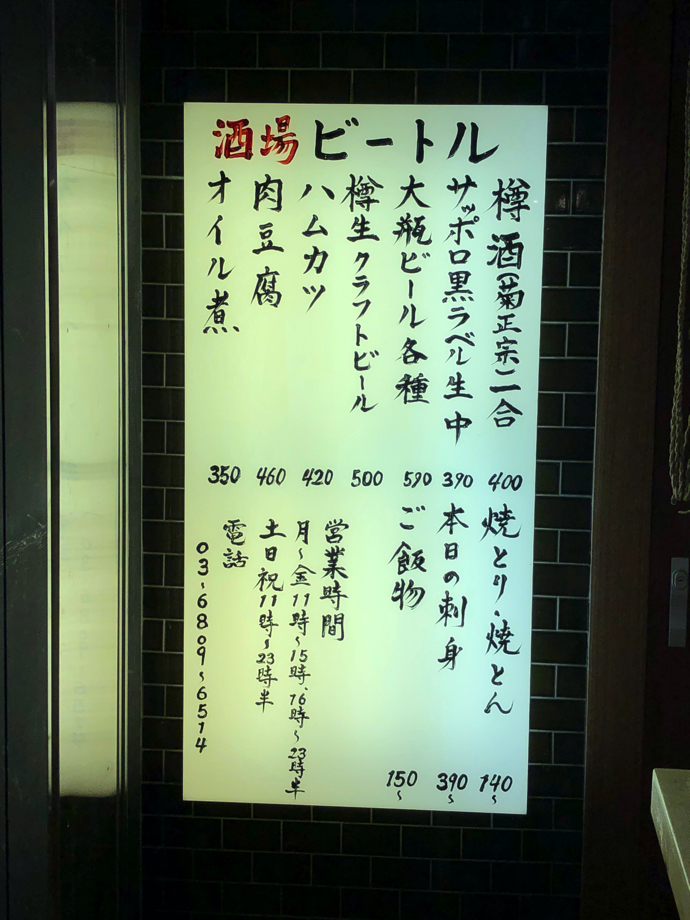 酒場ビートル
樽酒(菊正宗二合 400
サッポロ黒ラベル生中 390
大瓶ビール各種 590
樽生クラフトビール 500
ハムカツ 420
肉豆腐 460
オイル煮 350
焼とり・焼とん 140〜
本日の刺身 390〜
ご飯物 150〜
営業時間
月〜金11時〜15時、16時〜23時半
土日祝11時〜23時半
電話
03〜6809〜6514